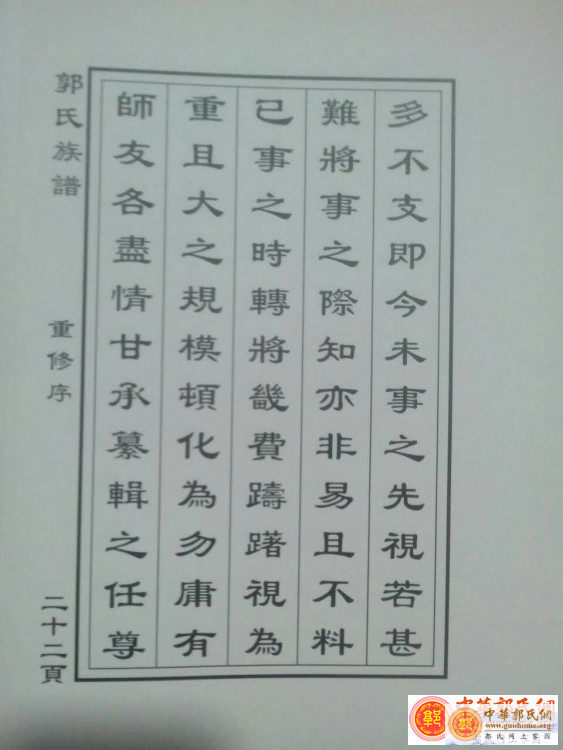 多不支即今未事之先視若甚
難將事之際知亦非易且不料
已事之時轉將畿費躊躇視為
重且大之規模頓化為勿庸有
師友各盡情甘承纂輯之任尊
郭氏族譜
重修序
二十二頁
中華郭氏網
www.guohome.org
郭氏网上家园